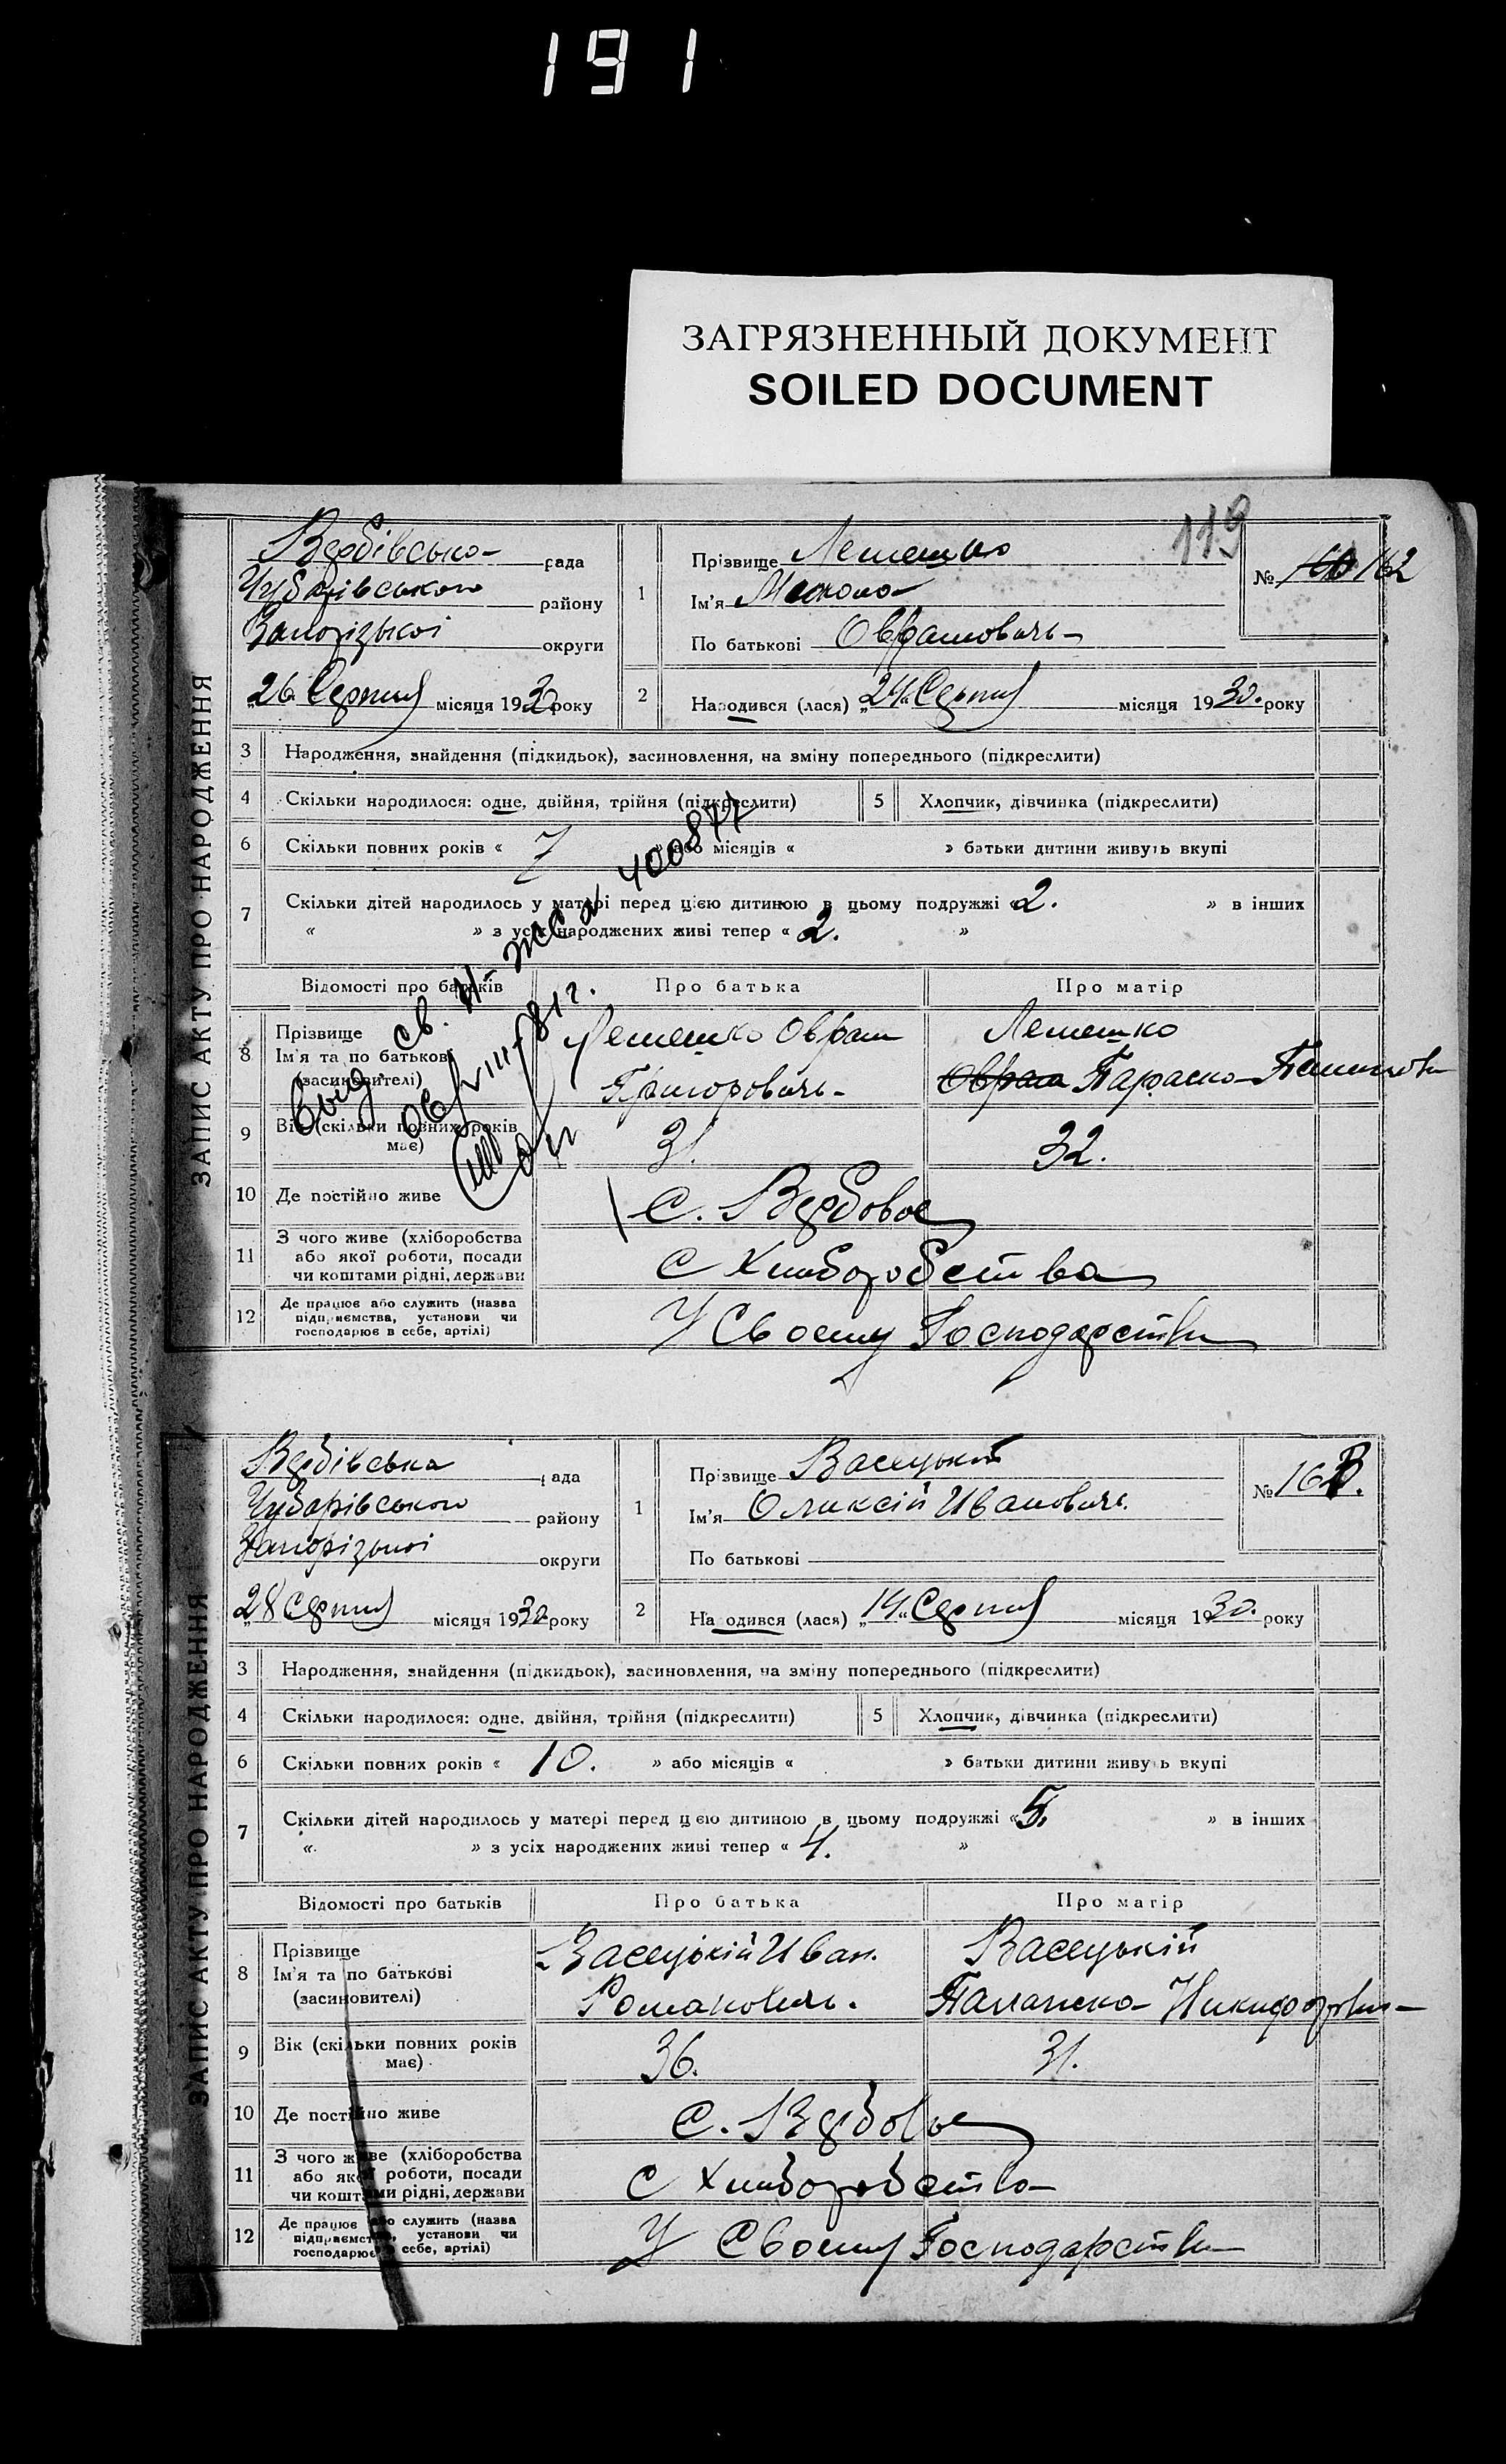 191
ЗАГРЯЗНЕННЫЙ ДОКУМЕНТ
SOILED DOCUMENT
119
ЗАПИС АКТУ ПРО НАРОДЖЕННЯ
Вербівсько- рада
Чубарівського району
Запорізької округи
„26 Серпня місяця 1930 року
1 Прізвище Лемешко
Ім'я
По батькові Оврамовичь-
№ 162
2 Народився (лася) „24„ Серпня місяця 1930. року
3 Народження, знайдення (підкидьок), засиновлення, на зміну попереднього (підкреслити)
4 Скільки народилося: одне, двійня, трійня (підкреслити) 5 Хлопчик, дівчинка (підкреслити)
6 Скільки повних років « 7 » або місяців « » батьки дитини живуть вкупі
7 Скільки дітей народилось у матері перед цією дитиною в цьому подружжі «2. » в інших
« » з усіх народжених живі тепер « 2. »
Відомості про батьків Про батька Про матір
8 Прізвище Ім'я та по батькові (засиновителі)
Лемешко Оврам Лемешко
Григоровичь- Параско-
9 Вік (скільки повних років має) 31. 32.
10 Де постійно живе С. Вербовое
11 З чого живе (хліборобства або якої роботи, посади чи коштами рідні, держави С Хлиборобства
12 Де працює або служить (назва підприємства, установи чи господарює в себе, артілі) У Своему Господарстви
Выд. св. 400877
ЗАПИС АКТУ ПРО НАРОДЖЕННЯ
Вербівська рада
Чубарівського району
Запорізької округи
„28 Серпня місяця 1930 року
1 Прізвище Васецький
Ім'я Оликсій Ивановичь.
По батькові
№ 163.
2 Народився (лася) „14„ Серпня місяця 1930. року
3 Народження, знайдення (підкидьок), засиновлення, на зміну попереднього (підкреслити)
4 Скільки народилося: одне, двійня, трійня (підкреслити) 5 Хлопчик, дівчинка (підкреслити)
6 Скільки повних років « 10. » або місяців « » батьки дитини живуть вкупі
7 Скільки дітей народилось у матері перед цією дитиною в цьому подружжі «5. » в інших
« » з усіх народжених живі тепер « 4. »
Відомості про батьків Про батька Про матір
8 Прізвище Ім'я та по батькові (засиновителі)
Васецькій Иван. Васецькій
Романовичь.
9 Вік (скільки повних років має) 36. 31.
10 Де постійно живе С. Вербовье
11 З чого живе (хліборобства або якої роботи, посади чи коштами рідні, держави С Хлиборобство-
12 Де працює або служить (назва підприємства, установи чи господарює в себе, артілі) У Своему Господарстви